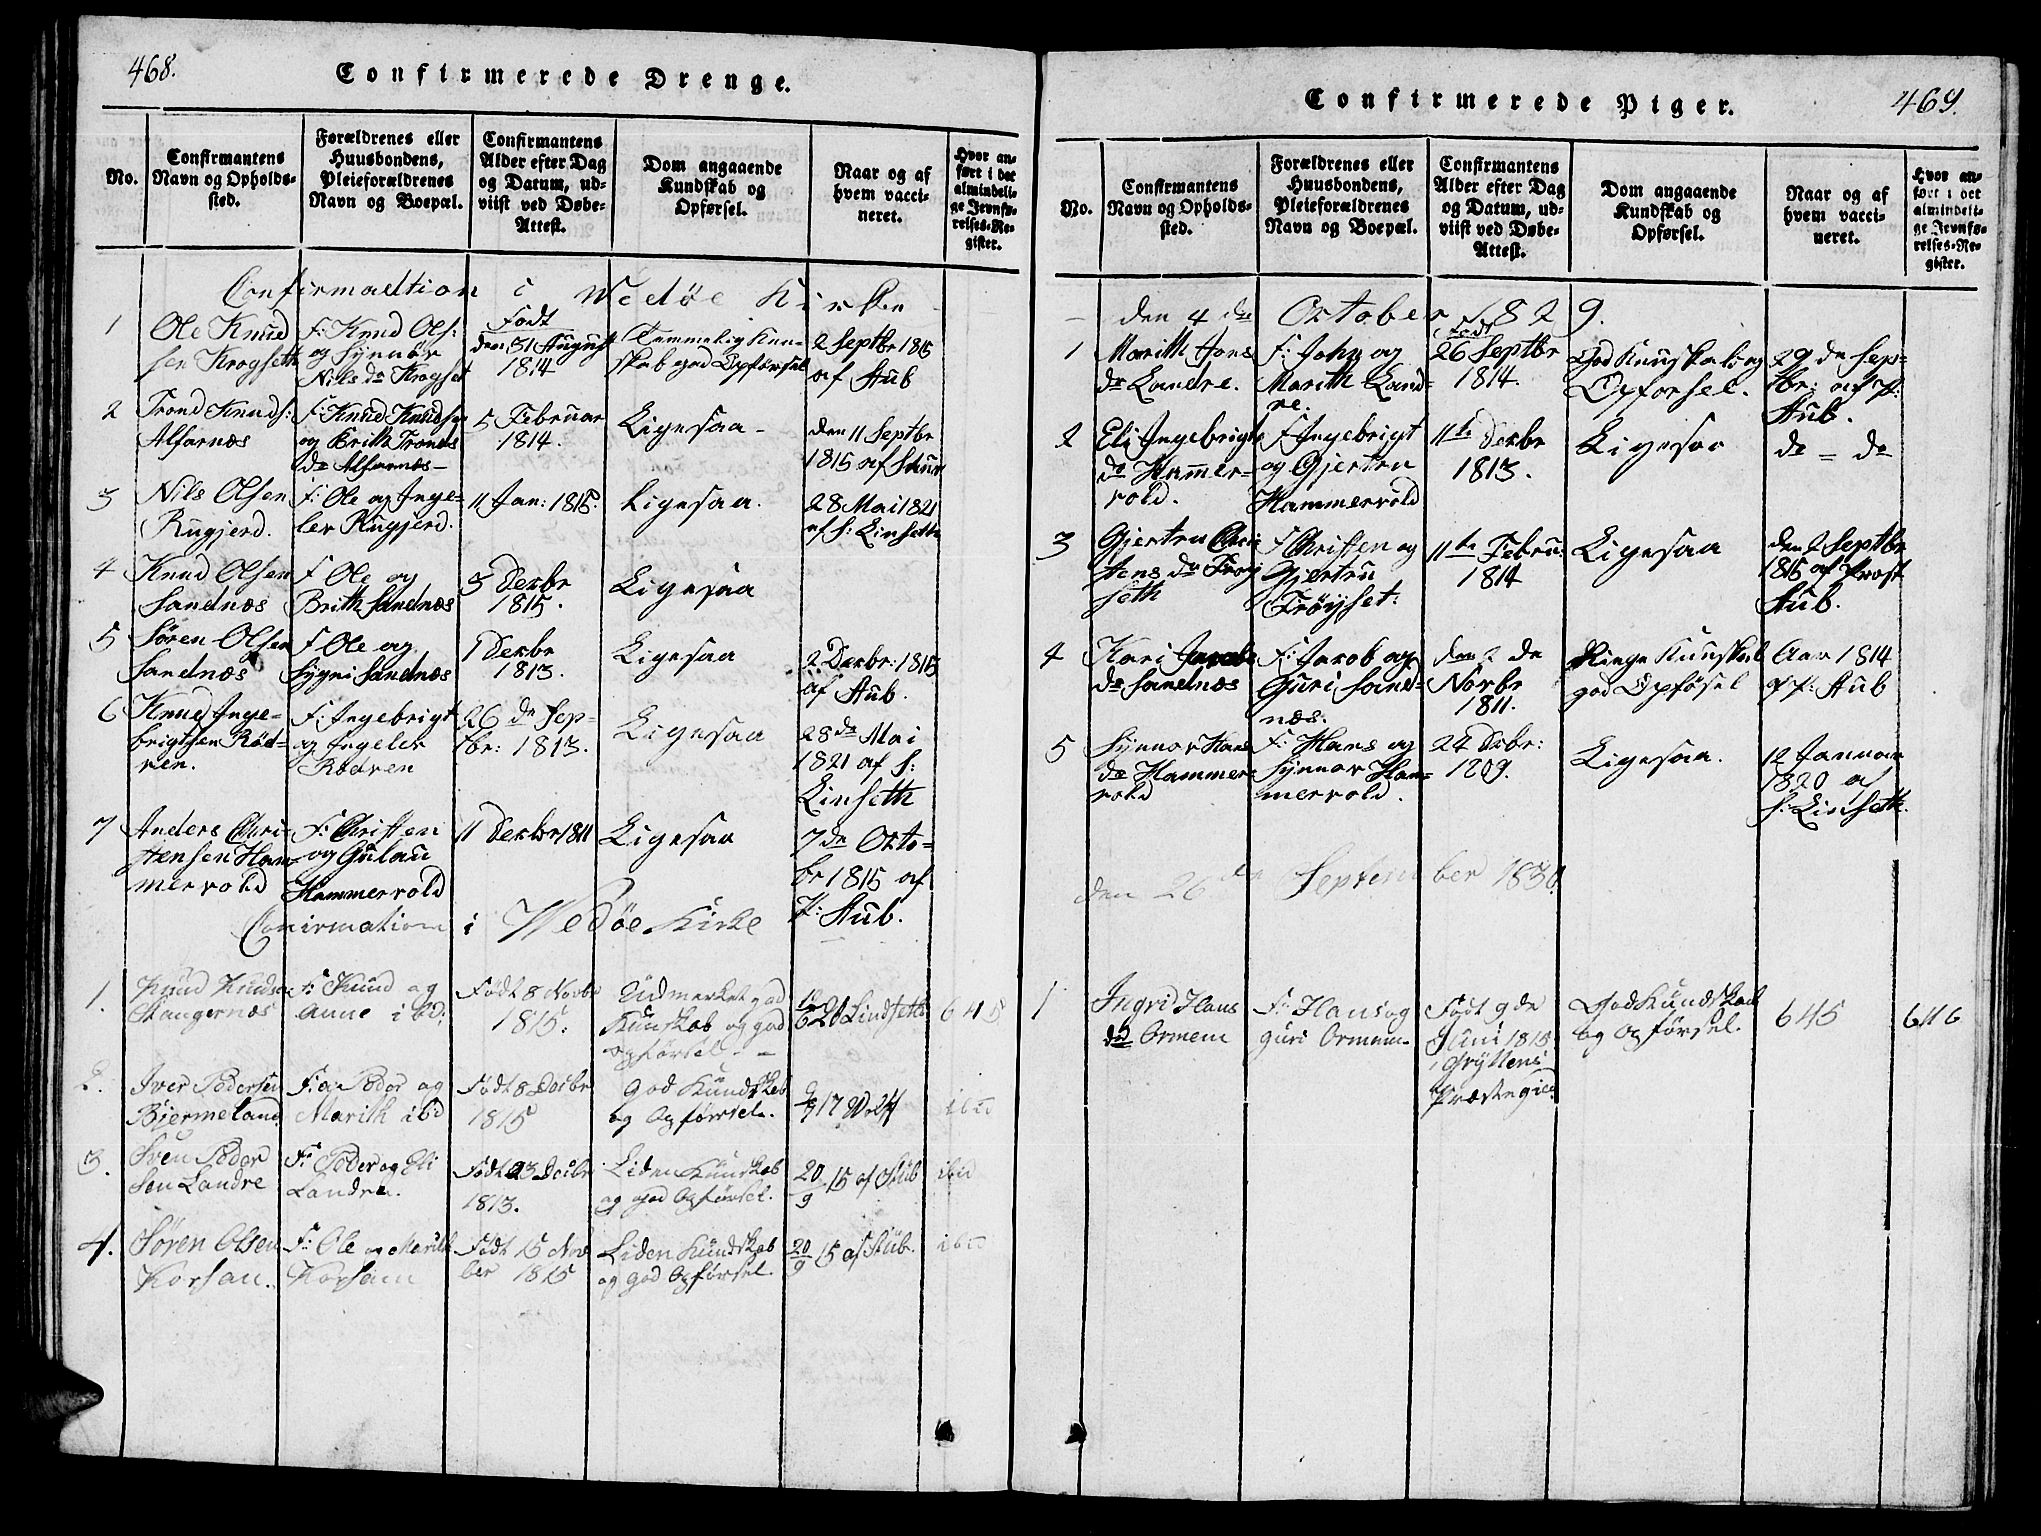 468.
Confirmerede Drenge.
No.
Confirmantens
Navn og Opholds-
sted.
Forældrenes eller
Huusbondens,
Pleieforældrenes
Navn og Boepæl.
Confirmantens
Alder efter Dag
og Datum, ud-
viist ved Døbe-
Attest.
Dom angaaende
Kundskab og
Opførsel.
Naar og af
hvem vacci-
neret.
Hvor an-
ført i det
almindeli-
ge Jevnfø-
relses-Re-
gister.
Confirmadtion i Wedöe Kirken
1
Ole Knud
sen Krogseth
F: Knud Ols:
og Synnöv
Nils da Krogset
Födt
den 31 August
1814
Temmelig Kun-
skab god Opförsel
2 Septbr 1815
af Stub
2
Trond Knuds:
Alfarnæs
F: Knud Knudsen
og Brith Tronds
da Alfarnæs-
5 Februar
1814.
Ligesaa-
den 11 Septbr
1815 af Stub
3
Nils Olsen
Rugjerd.
F: Ole og Inge-
lev Rugjerd.
11 Jan: 1815.
Ligesaa.
28 Mai 1821
af S: Linseth
4
Knud Olsen
Sandnæs
F Ole og
Brith Sandnæs
3 Decbr
1815.
Ligesaa
5
Sören Olsen
Sandnæs
F Ole og
Sygni Sandnæs
1 Decbr
1813.
Ligesaa
2 Decbr: 1815
af Stub.
6
Knud Inge-
brigtsen Röd-
ven.
F: Ingebrigt
og Ingelev
Rödven
26 de Sep-
tbr: 1813.
Ligesaa
28 de Mai
1821 af S:
Linseth
7
Anders Chri-
stensen Ham-
mervold
F: Christen
og Gulau
Hammervold
11 Decbr 1811
Ligesaa
7 de Octo-
br 1815 af
P: Stub.
Confirmation i Wedöe Kirke
1.
Knud Knudsen
Stangernæs
F: Knud og
Anne ibd:
Födt 8 Novbr
1815.
Udmerket god
Kunskab og god
opförsel - -
20 Lindseth
645
2.
Iver Pedersen
Bjermeland.
F: a Peder og
Marith ibd
Födt 8 Decbr
1815
god Kundskab
og Opförsel.
17 Wolff
ibid
3.
Sven Peder
sen Landre
F: Peder og Eli
Landre.
Födt 23 Decbr
1813.
Liden Kunskab
og god Opförsel.
20/9 15 af Stub
ibid
4.
Sören Olsen
Korsan.
F: Ole og Marith
Korsan
Födt 15 Nov
ber 1815
Liden Kundskab
og god Opförsel.
20/9 15 af Stub.
ibid
469.
Confirmerede Piger.
No.
Confirmantens
Navn og Opholds-
sted.
Forældrenes eller
Huusbondens,
Pleieforældrenes
Navn og Boepæl.
Confirmantens
Alder efter Dag
og Datum, ud-
viist ved Døbe-
Attest.
Dom angaaende
Kundskab og
Opførsel.
Naar og af
hvem vacci-
neret.
Hvor an-
ført i det
almindeli-
ge Jevnfø-
relses-Re-
gister.
den 4 de October 1829.
1
Marith Jons
da Landre.
F: John og
Marith Land-
re.
Födt
26 Septbr
1814.
god Kunskab og
Opförsel.
29 de Sep-
tbr: af P:
Stub.
2
Eli Ingebrigts
da Hammer-
vold.
F Ingebrigt
og Gjertru
Hammervold
11te Decbr
1813.
Ligesaa
de - de
3
Gjertru Chri
stens da Tröy
seth
F Christen og
Gjertru
Tröyset:
11te Febru:
1814
Ligesaa
den 2 Septbr
1815 af Prost
Stub.
4
Kari Jacobs
da Sandnæs
F: Jacob og
Guri Sand-
næs.
den 2 de
Novbr
1811.
Ringe Kunskab
god Opfösel
Aar 1814
af P: Stub
5
Synnov Hans
da Hammer-
vold
F: Hans og
Synnov Ham-
mervold.
24 Decbr:
1809.
Ligesaa.
12 Januar
1820 af
S: Linseth.
den 26 de September 1830.
1
Ingri Hans
da Ormem
F: Hans og
guri Ormem-
Födt 9 de
Juni 1815
i Gryttens
Præstegield.
God Kundskab
og Opförsel.
645
646